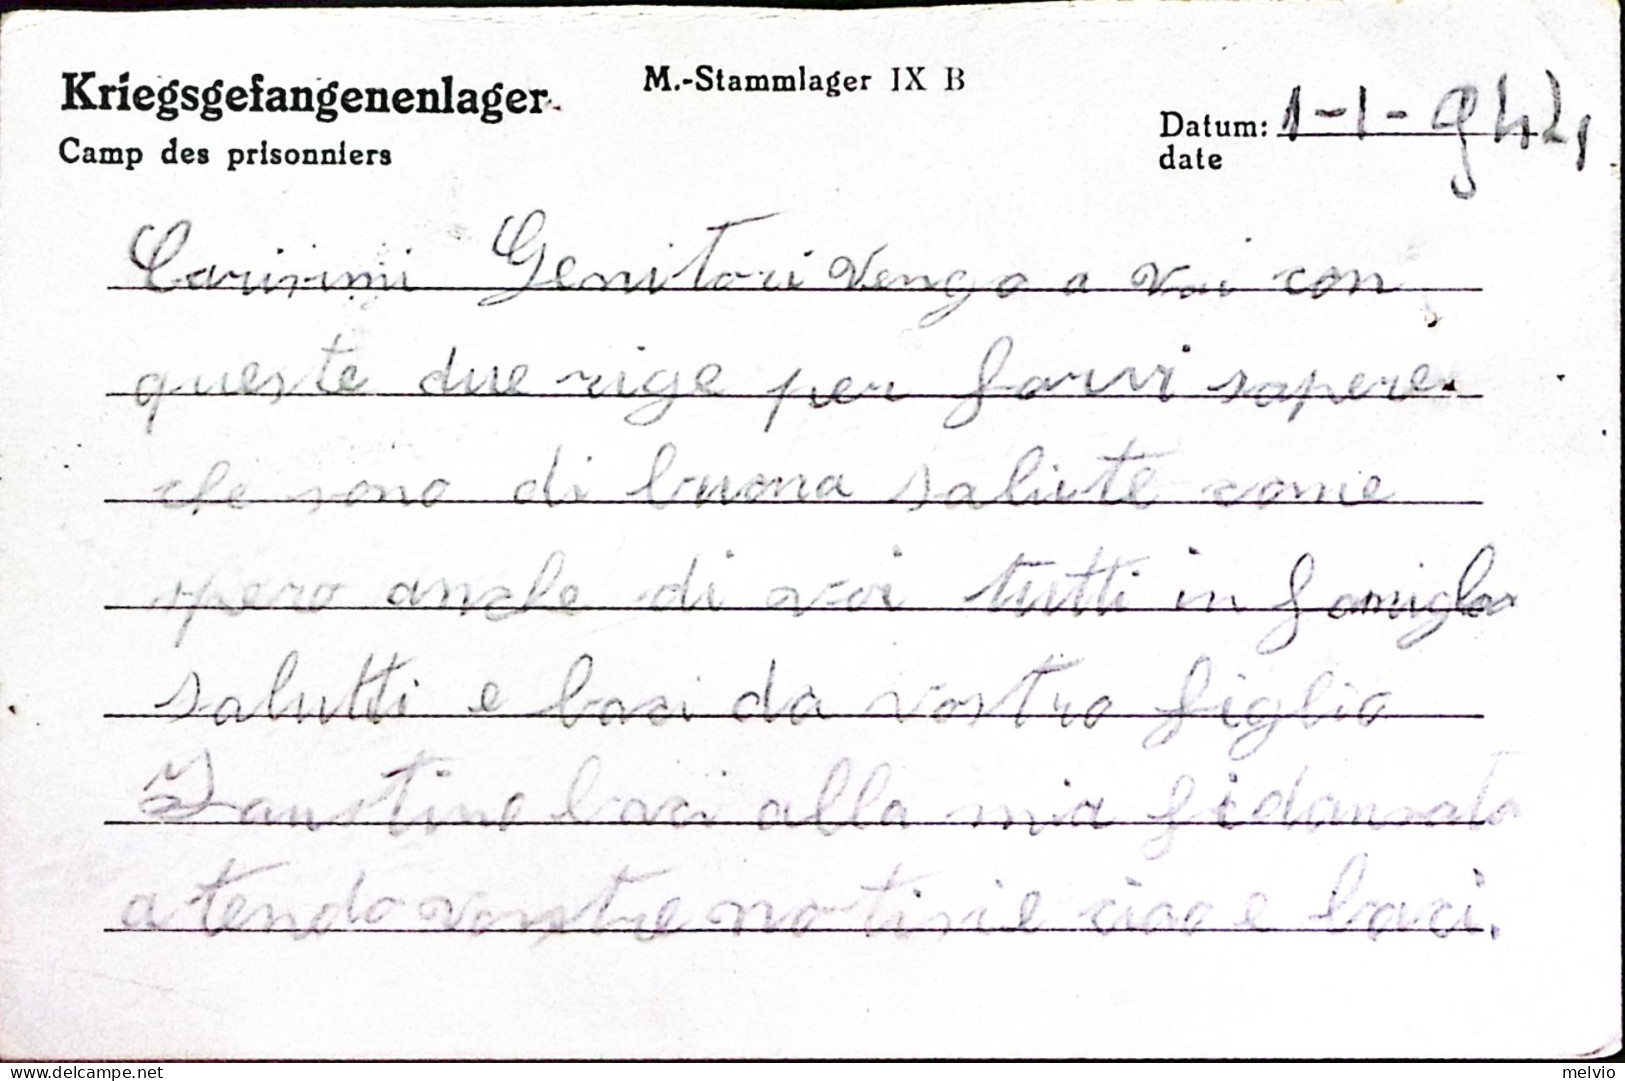 Kriegsgefangenenlager
M.-Stammlager IX B
Camp des prisonniers
Datum: 1-1-944
date
Carissimi Genitori vengo a voi con
queste due rige per farvi sapere
che sono di buona salute come
spero anche di voi tutti in famiglia
salutti e baci da vostro figlio
Faustino baci alla mia fidansata
atendo vostre notisie ciao e baci.
delcampe.net
melvio